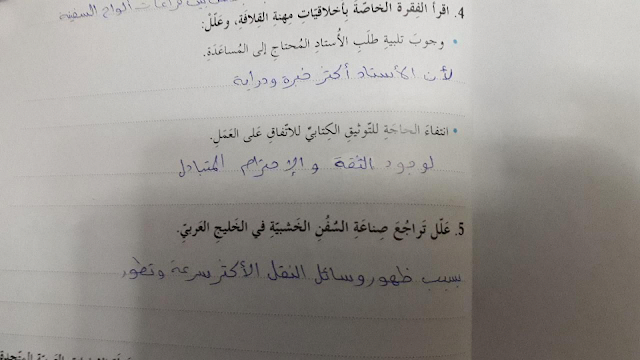 بين قراءات ألواح السفينة
4. اقرأ الفِقرةَ الخاصّةَ بِأخلاقيّاتِ مِهنةِ القِلافَةِ، وعَلّل:
• وجوبَ تلبيةِ طلَبِ الأُستاذِ المُحتاجِ إلى المُساعَدَةِ.
لأن الأستاذ أكثر خبرة ودراية
• انتفاءَ الحاجَةِ للتّوثيقِ الكِتابيِّ للاتّفاقِ عَلى العَمَلِ.
لوجود الثقة والإحترام المتبادل
5. عَلّل تَراجُعَ صِناعَةِ السُّفُنِ الخَشبيّةِ في الخَليجِ العَربيّ.
بسبب ظهور وسائل النقل الأكثر سرعة وتطور